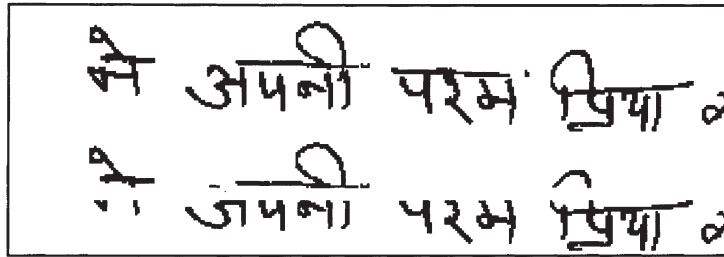 ने अपनी परम प्रिया
अपनी परम प्रिया